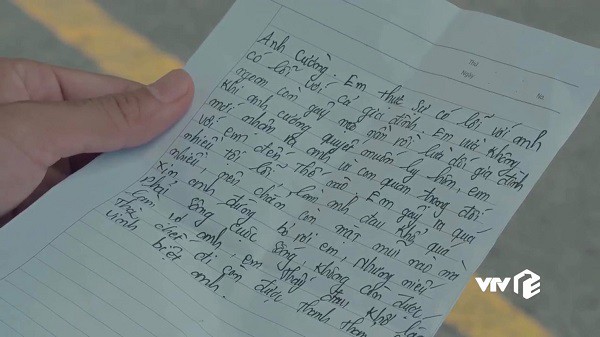 Thứ
Ngày No
Anh Cường. Em thực sự có lỗi với anh
có lỗi với cả gia đình. Em vừa không
ngoan, còn gây nợ nần rồi lừa dối gia đình
Khi anh cương quyết muốn ly hôn, em
mới nhận ra anh và con quan trọng đối
với em đến thế nào. Em gây ra quá
nhiều tội lỗi, làm anh đau khổ quá
nhiều, nên chẳng còn mặt mũi nào mà
xin anh đừng bỏ rơi em, Nhưng nếu
phải sống cuộc sống không còn được
làm vợ anh, em thấy đau khổ lắm
Thà chết đi còn được thanh thản
Vĩnh biệt anh.
VTV